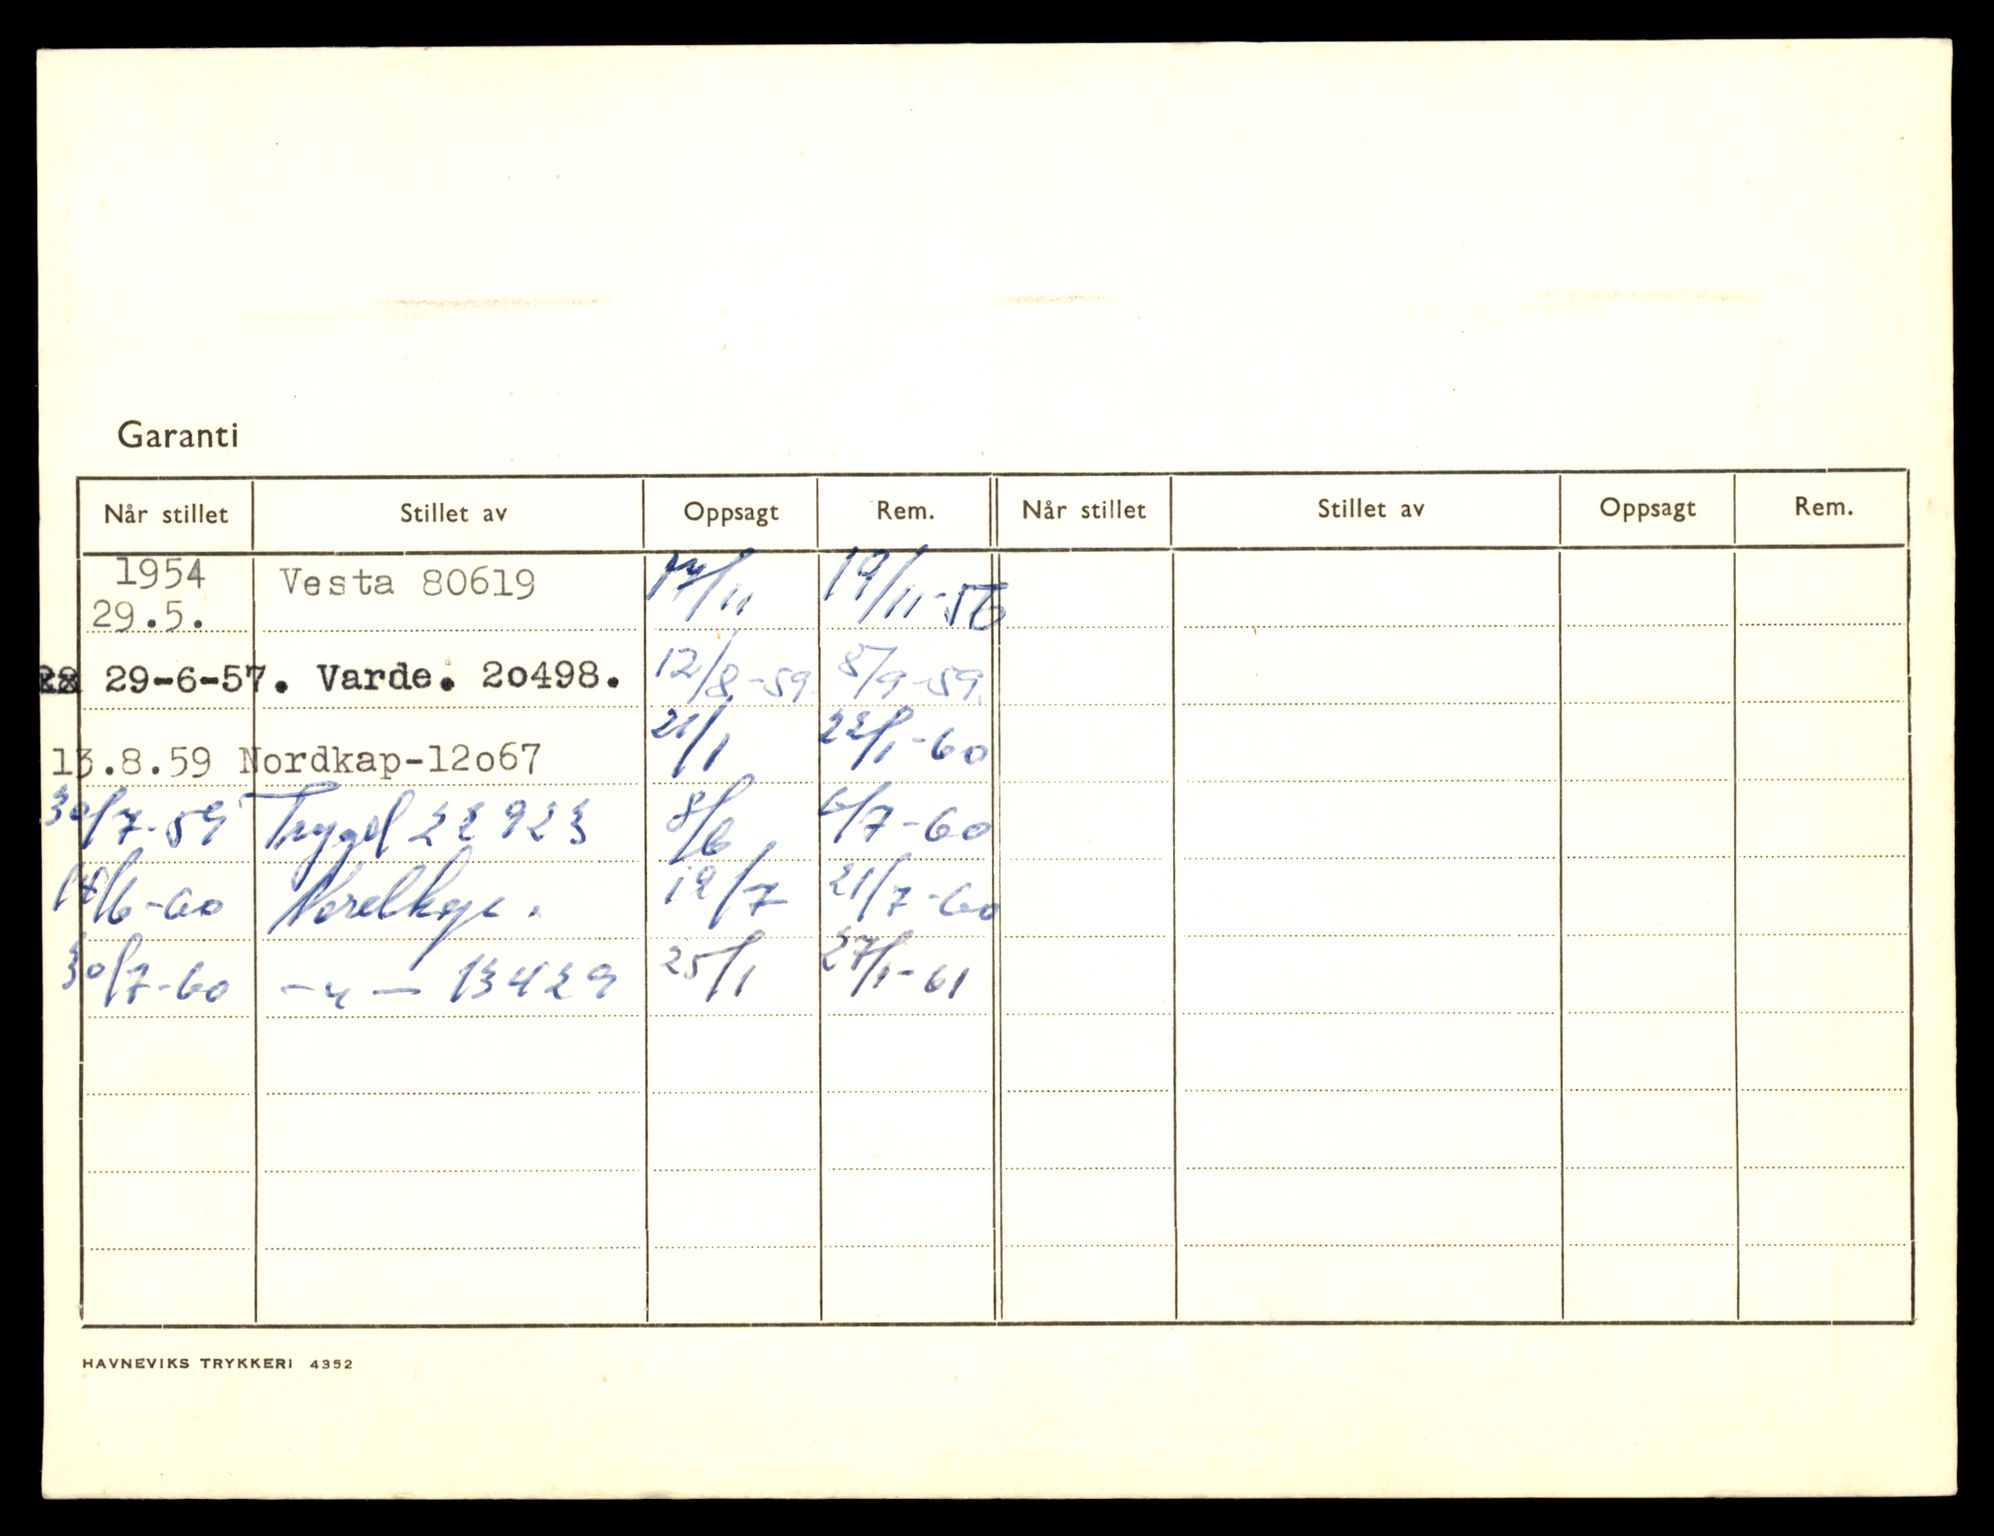 Garanti
Når stillet Stillet av Oppsagt Rem. Når stillet Stillet av Oppsagt Rem.
1954 Vesta 80619 /11 19/11-56
29.5.
29-6-57. Varde. 2o498. 12/8-59. 8/9-59.
13.8.59 Nordkap-12o67 21/1 22/1-60
30/7-59 Trygd 22923 8/6 6/7-60
18/6-60 Nordkap. 19/7 21/7-60
30/7-60 -"- 13429 25/1 27/1-61
HAVNEVIKS TRYKKERI 4352